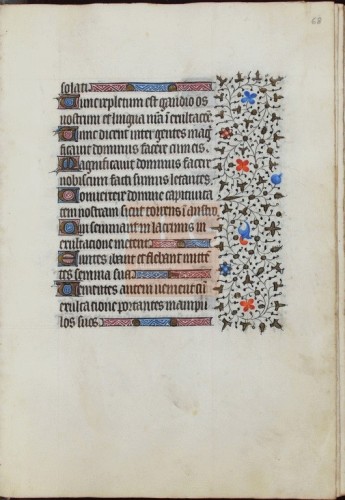 68
solati
Tunc repletum est gaudio os
nostrum et lingua n̄ra ī exultacōe
Tunc dicent inter gentes mag
ficauit dominus facere cum eis
Magnificauit dominus facere
nobiscum facti sumus letantes
Conuertere domine captiuita
tem nostram sicut torrens ī austro
Qui seminant in lacrimis in
exultacione metent
Euntes ibant et flebant mitte
tes semina sua
Uenientes autem uenient cū
exultacione portantes manipu
los suos